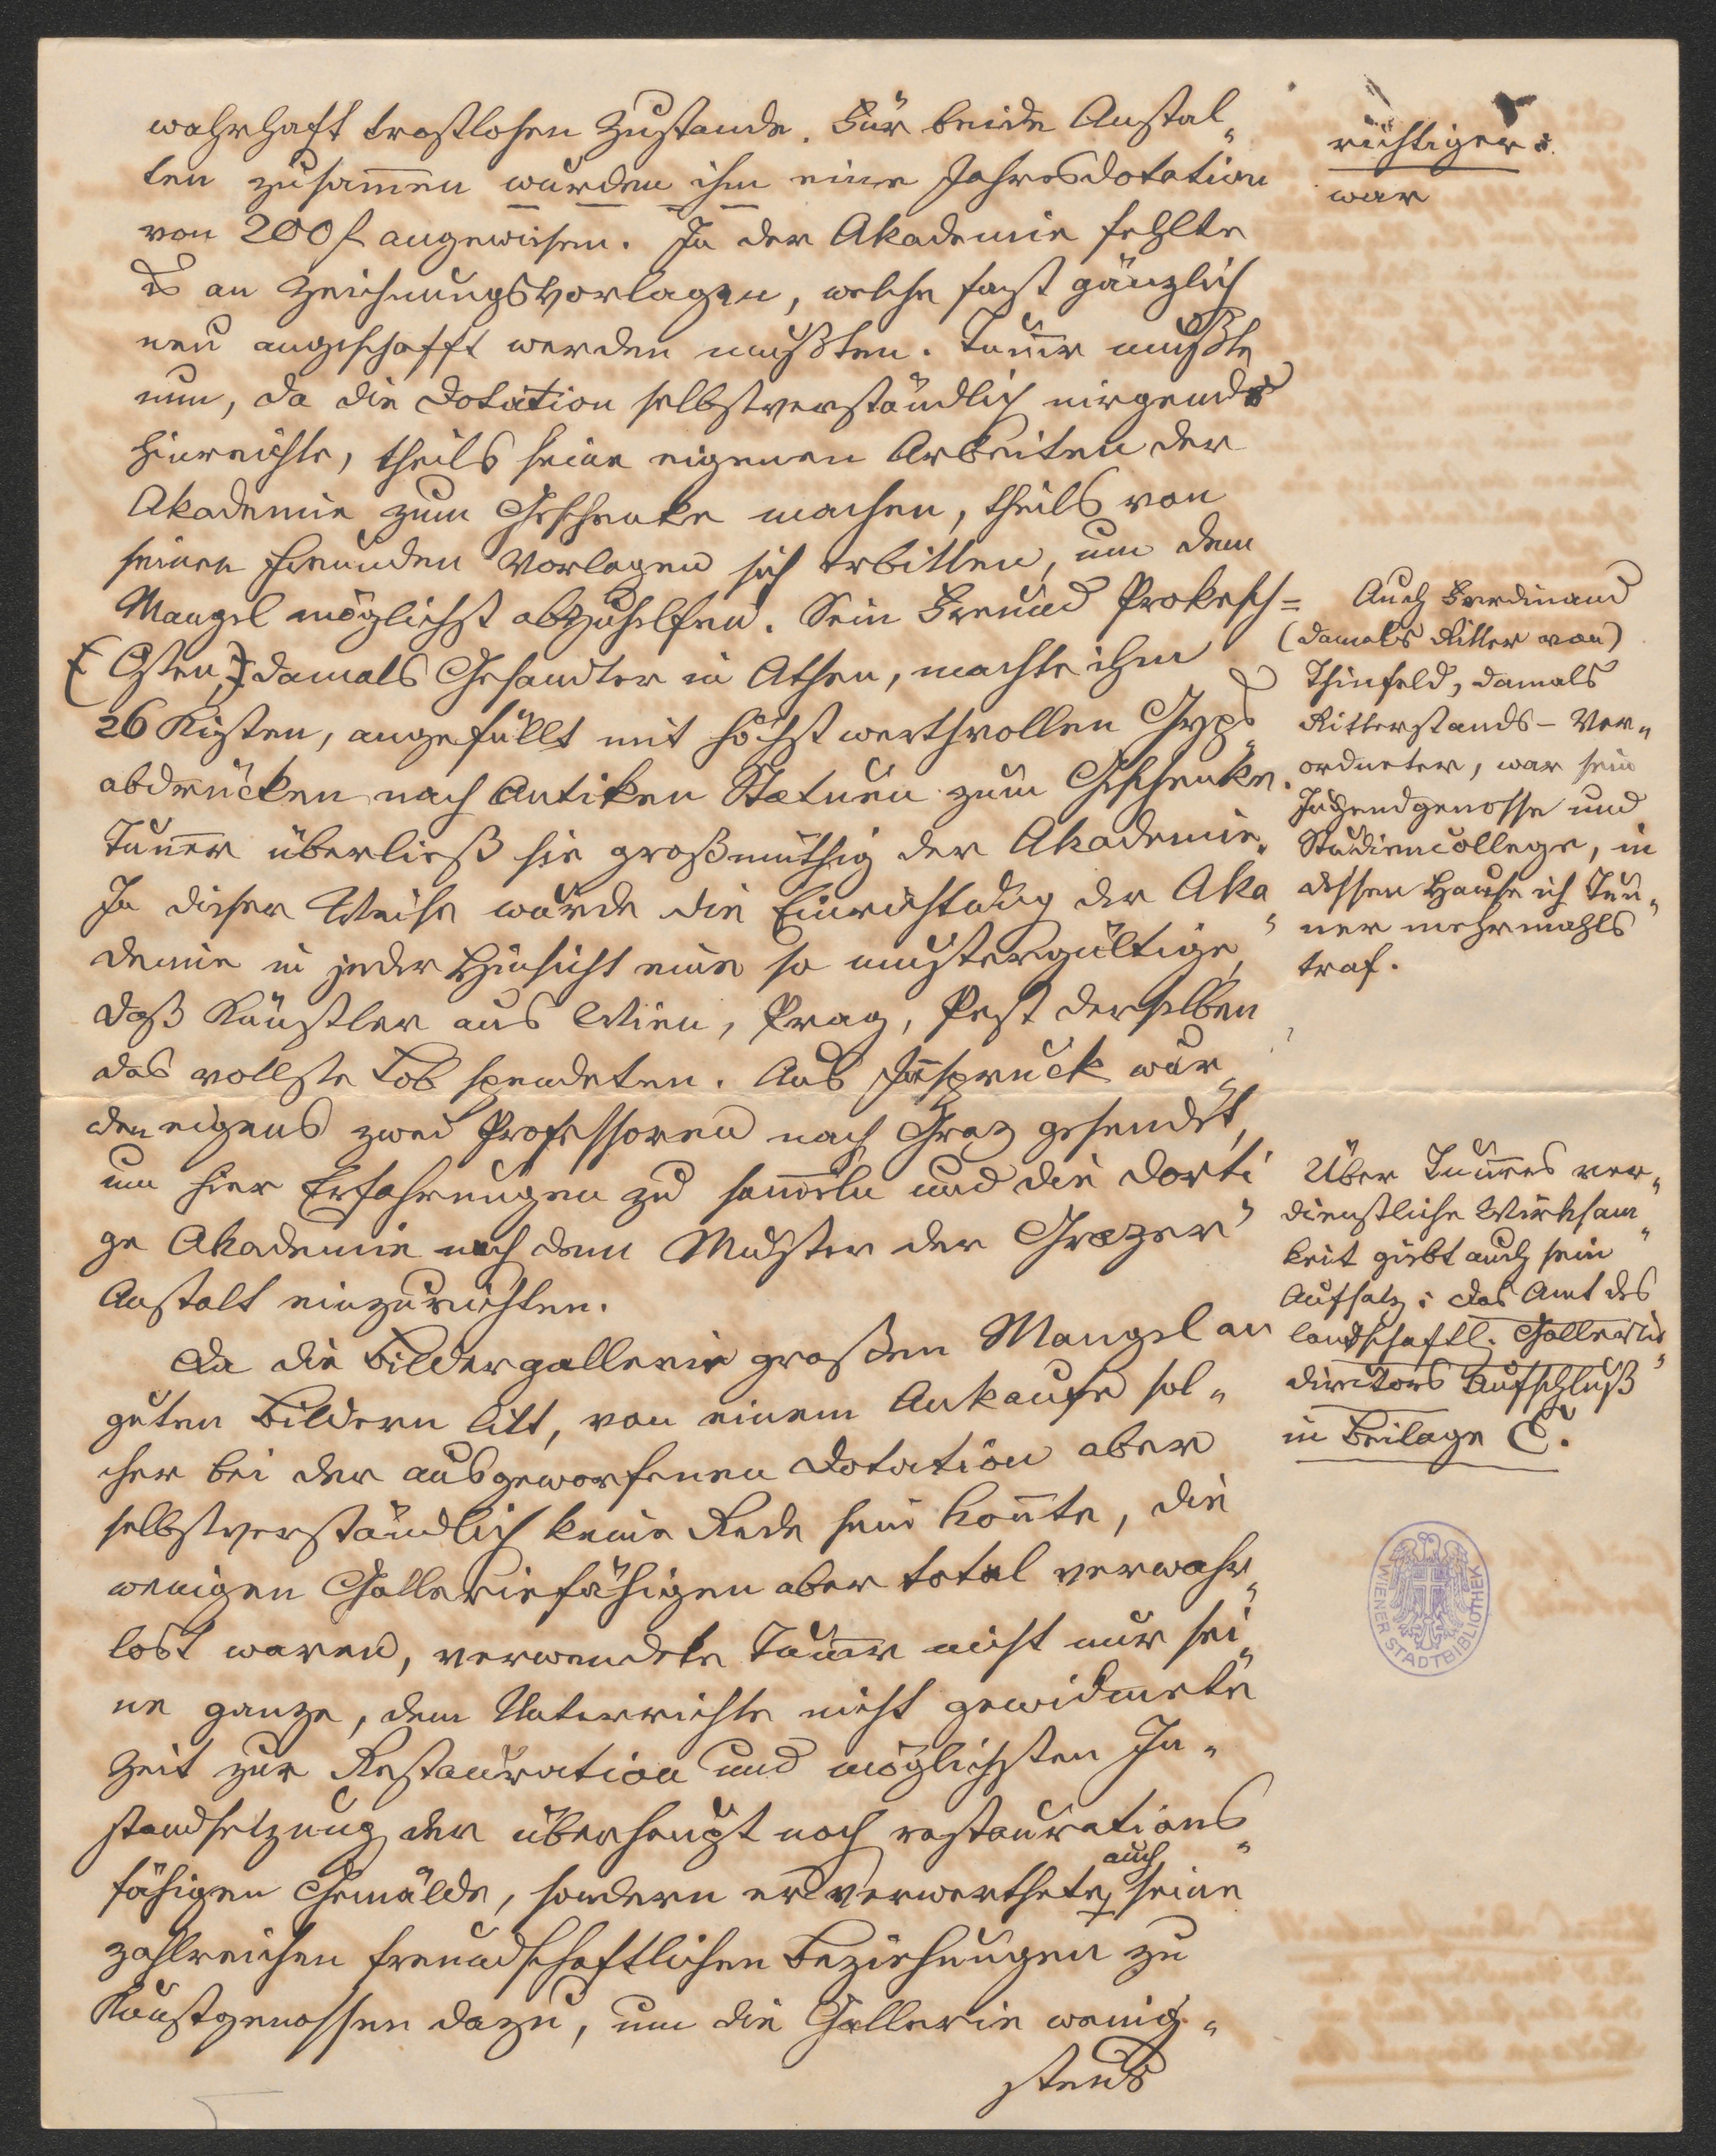 wahrhaft trostlosen Zustande. Für beide Anstal„
ten zusam̄en wurden ihm eine Jahresdotation
von 200 f angewiesen. In der Akademie fehlte
es an Zeichnungsvorlagen, welche fast gänzlich
neu angeschafft werden mußten. Tuner mußte
nun, da die Dotation selbstverständlich nirgends
hinreichte, theils seine eigenen Arbeiten der
Akademie zum Geschenke machen, theils von
seinen Freunden Vorlagen sich erbitten, um dem
Mangel möglichst abzuhelfen. Sein Freund Prokesch=
(Osten,) damals Gesandter in Athen, machte ihm
26 Kisten, angefüllt mit höchst werthvollen Gyps„
abdrücken nach Antiken Statuen zum Geschenke.
Tun̄er überließ sie großmüthig der Akademie.
In dieser Weise wurde die Einrichtung der Aka„
demie in jeder Hinsicht eine so mustergültige,
daß Künstler aus Wien, Prag, Pest derselben
das vollste Lob spendeten. Aus In̄spruck wur„
den eigens zwei Professoren nach Graz gesendet,
um hier Erfahrungen zu sam̄eln und die dorti„
ge Akademie nach dem Muster der Grazer
Anstalt einzurichten.
Da die Bildergallerie großen Mangel an
guten Bildern litt, von einem Ankaufe sol„
cher bei der ausgeworfenen Dotation aber
selbstverständlich keine Rede sein kon̄te, die
wenigen Galleriefähigen aber total verwahr„
lost waren, verwendete Tun̄er nicht nur sei„
ne ganze, dem Unterrichte nicht gewidmete
Zeit zur Restauration und möglichsten In„
standsetzung der überhaupt noch restaurations„
fähigen Gemälde, sondern er verwerthete auch seine
zahlreichen freundschaftlichen Beziehungen zu
Kunstgenossen dazu, um die Gallerie wenig„
stens
richtiger:
war
Auch Ferdinand
(damals Ritter von)
Thinfeld, damals
Ritterstands-Ver„
ordneter, war sein
Jugendgenosse und
Studiencollege, in
dessen Hause ich Tun„
ner mehrmahls
traf.
Über Tun̄ers ver„
dienstliche Wirksam„
keit giebt auch sein
Aufsatz: Das Amt des
landschaftl. Gallerie„
directors Aufschluß
in Beilage C.
WIENER STADTBIBLIOTHEK